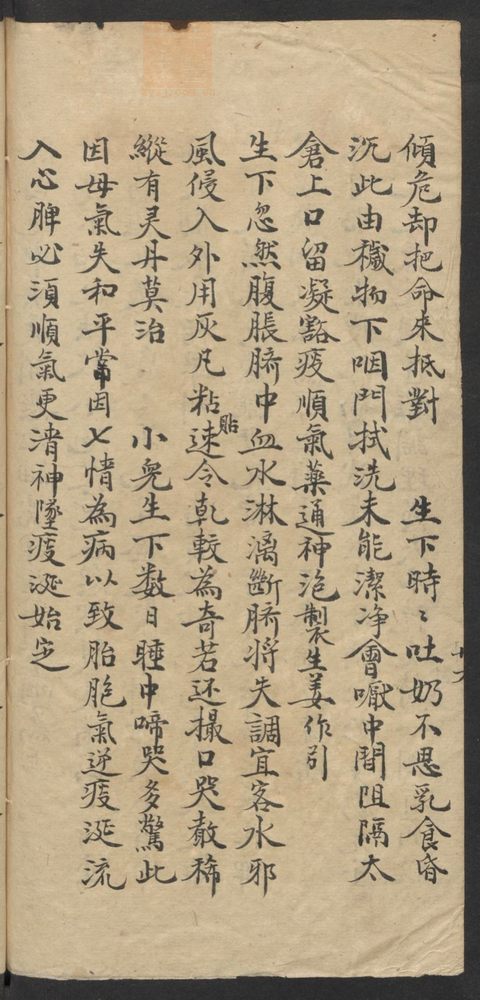 傾危却把命來抵對　生下時〻吐奶不思乳食昏
沉此由穢物下咽門拭洗未能潔净會嚈中間阻隔太
倉上口留凝豁痰順氣藥通神泡製生姜作引
生下忽然腹脹臍中血水淋漓斷臍將失調宜客水邪
風侵入外用灰凡粘貼速令乾較為奇若还撮口哭散稀
縱有灵丹莫治　小兒生下数日睡中啼哭多驚此
因母氣失和平常因七情為病以致胎胞氣逆痰涎流
入心脾必須順氣更清神墜痰涎始定